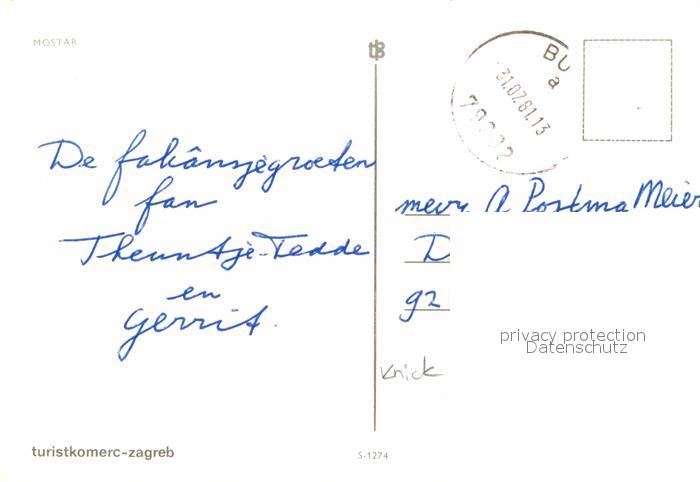 MOSTAR
BU
a
31.07.81.13
De fakânsjegroeten
fan
Theuntsje-Tedde
en
Gerrit.
mevr A Postma Meier
D
92
privacy protection
Datenschutz
Knick
turistkomerc-zagreb
S-1274